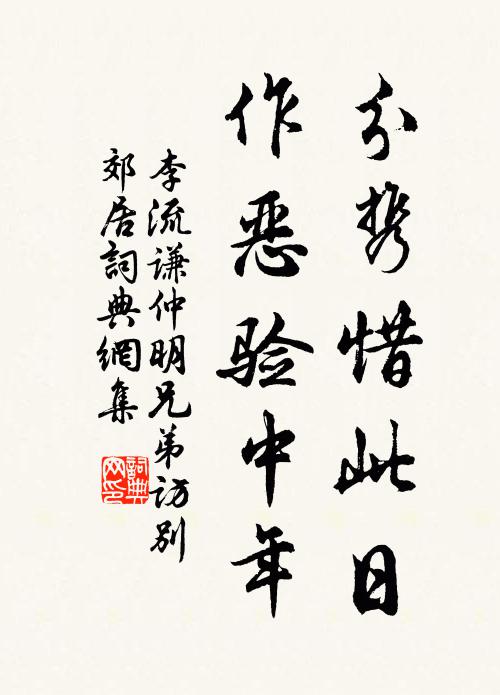 分携惜此日
作恶验中年
李流谦仲明兄弟访别
郊居詞典網集
詞典
网印